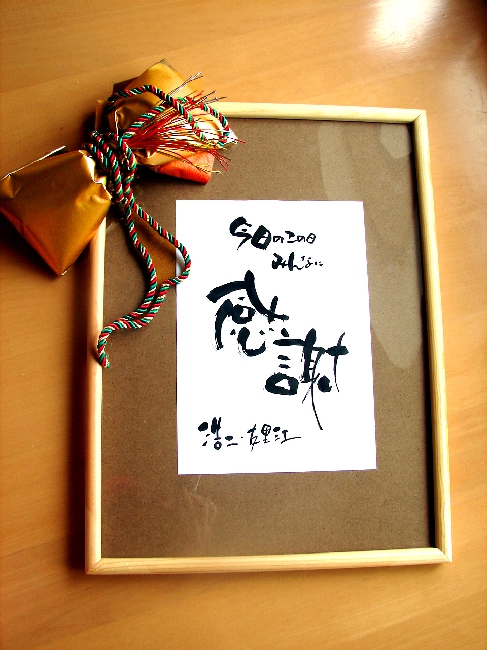 今日のこの日
みんなに
感謝
浩二・友里江